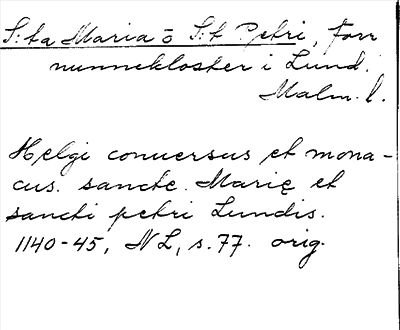 S:ta Maria o S:t Petri, Forr
nunnekloster i Lund.
Malm. l.
Helgi conuersus et mona-
cus. sancte. Marię et
sancti petri Lundis.
1140-45, NL, s. 77. orig.